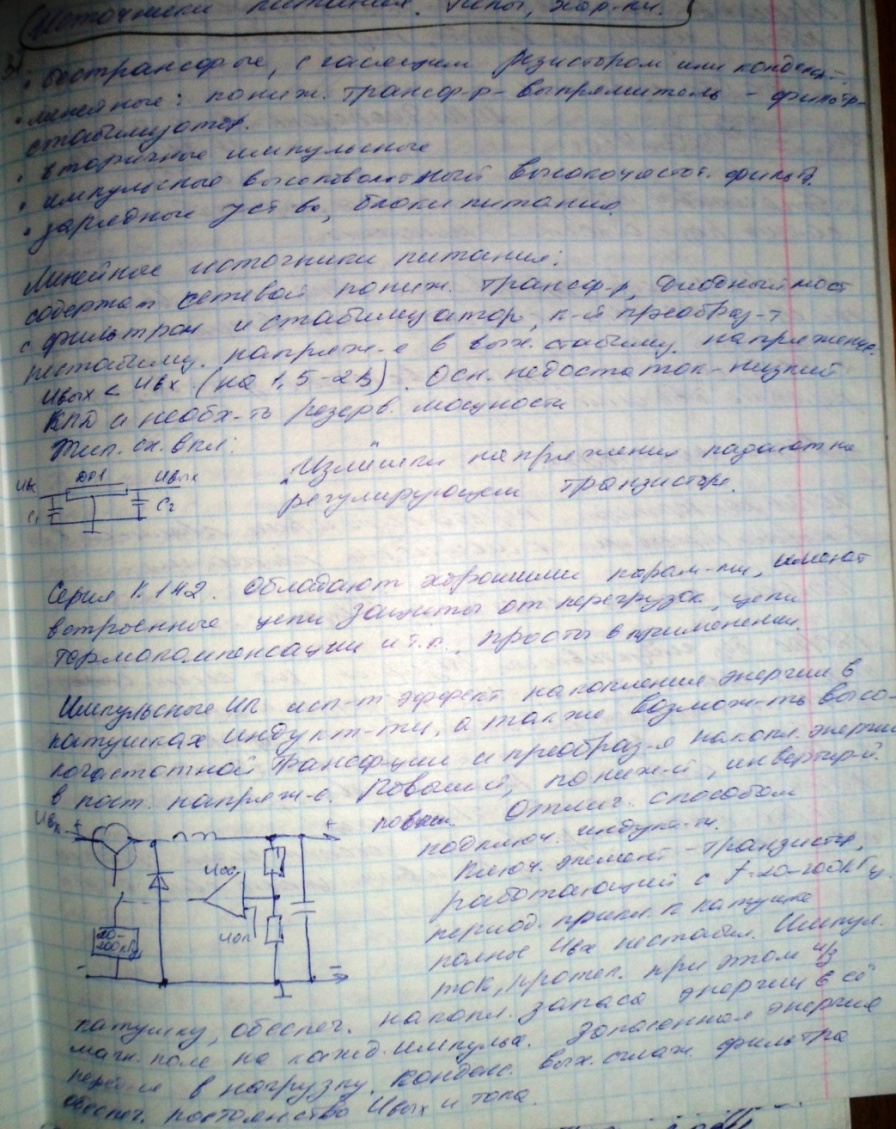 Источники питания. Типы, хар-ки.
• бестрансф-ые, с гасящим резистором или конденс-
• линейные: пониж. трансф-р - выпрямитель - фильтр-
стабилизатор.
• вторичные импульсные
• импульсно высоковольтный высокочастот. фильтр.
• зарядные уст-ва, блоки питания.
Линейные источники питания:
содержат сетевой пониж. трансф-р, диодный мост
с фильтром и стабилизатор, к-й преобраз-т
нестабилиз. напряж-е в вых. стабилиз. напряжение.
Uвых < Uвх (на 1,5-2В). Осн. недостаток - низкий
КПД и необх-ть резерв. мощности
Тип. сх. вкл:
Uвх DA1 Uвых
C1 C2
Излишки напряжения падают на
регулирующем транзисторе.
Серия К142. Обладают хорошими парам-ми, имеют
встроенные цепи защиты от перегрузок, цепи
термокомпенсации и т.п., просты в применении.
Импульсные ИП исп-т эффект накопления энергии в
катушках индукт-ти, а также возмож-ть высо
кочастотной трансф-ции и преобраз-я накопл. энергии
в пост. напряж-е. Повыш-й, пониж-й, инвертир-й.
Отлич. способом
подключ. индукт-ти.
Uвх + +
Ключ. элемент - транзистор,
работающий с f=20-100кГц
период. прикл. к катушке
полное Uвх нестабил. Импул.
ток, протек. при этом ч/з
Uос
Uоп
20-
100кГц
- -
катушку, обеспеч. накопл. запаса энергии в её
магн. поле на кажд. импульсе. Запасенная энергия
в нагрузку. Конденс. вых. сглаж. фильтра
обеспеч. постоянство Uвых и тока.